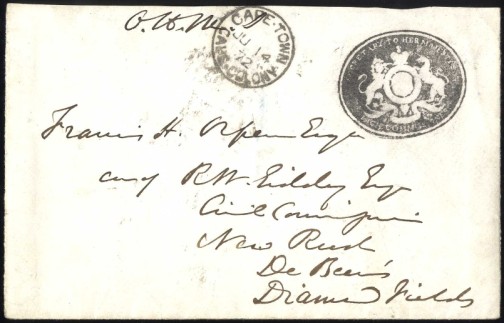 O.H.M.S
CAPE-TOWN
JU 1
72
CAPE COLONY
Francis H. Orpen Esqr
care of R.W. Eidley Esq
Civil Commissioner
New Rush
De Beer's
Diamond Fields